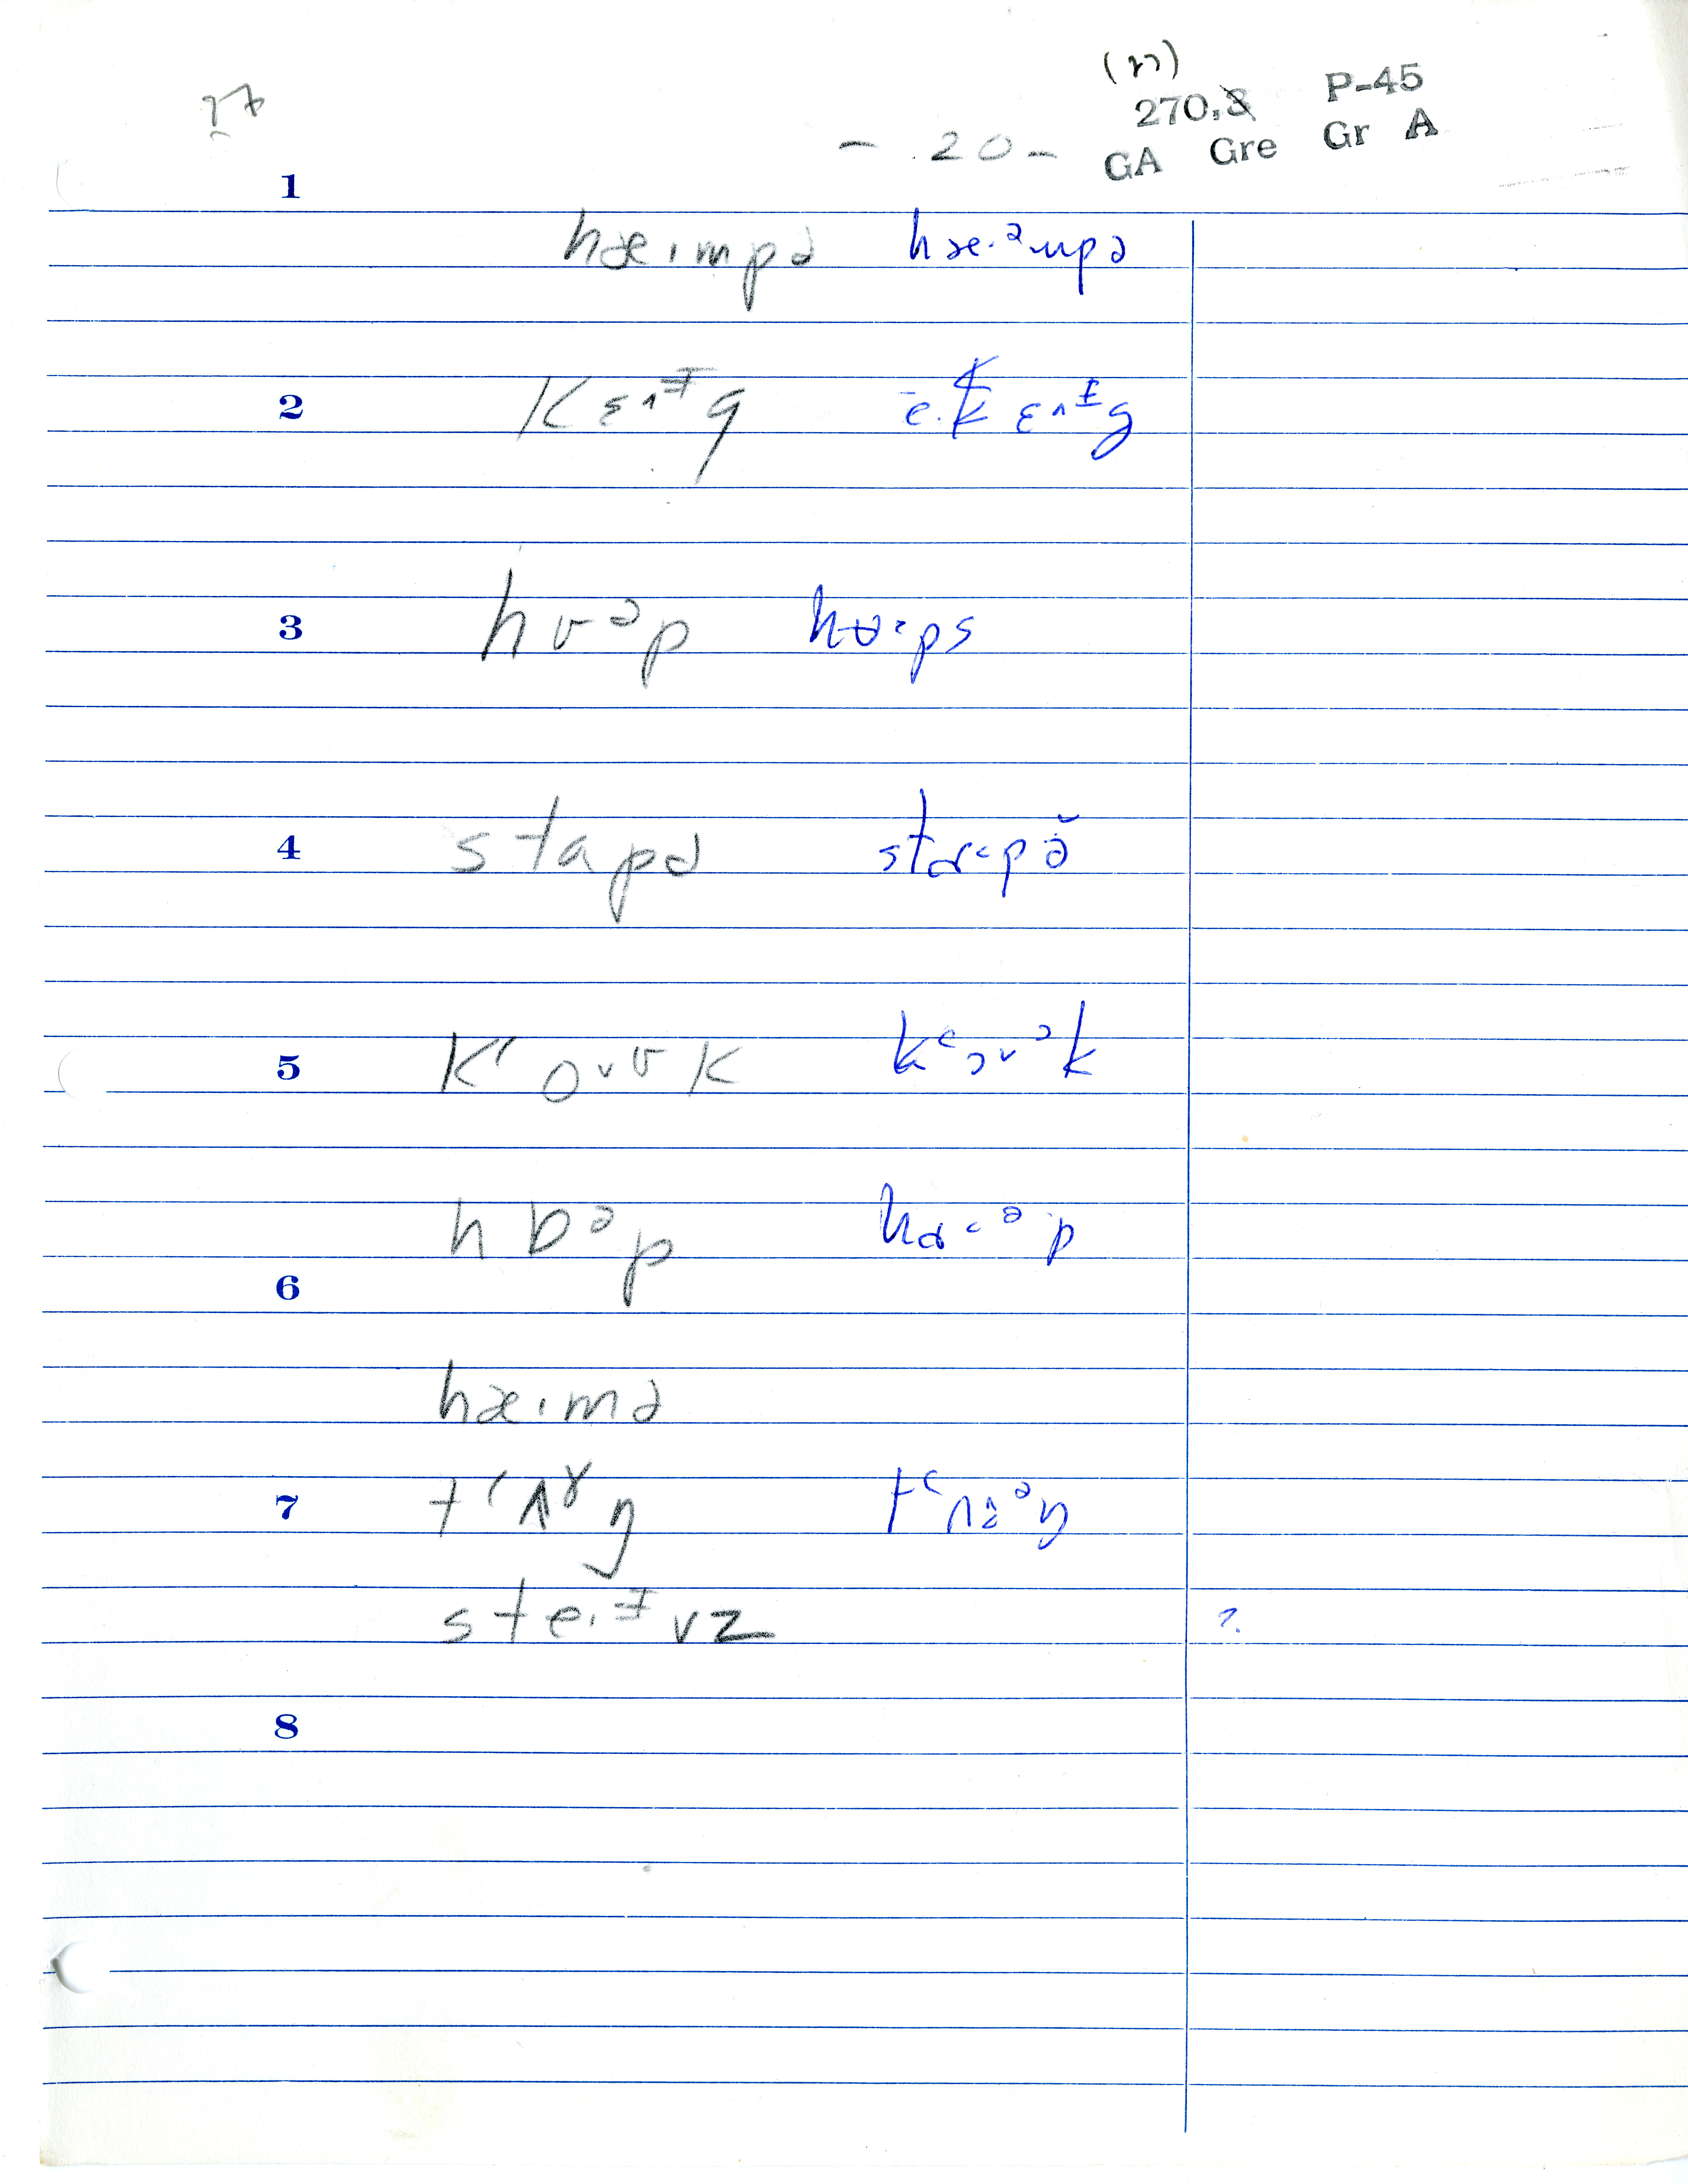 (n)
270.3 P-45
- 20 - GA Gre Gr A
1
hæ·mpə hæ·ᵊmpə
2 kɛ^ᴵg e·kɛ^ᴵg
3 hʊᵊp hʊ·ps
4 stapə stɑ·pə̆
5 kʻoᵛʊk kʻɔᵛᵊk
hɒᵊp hɑ·ᵊp
6
hæ·mə
7 tʻʌˠŋ tʻʌᵊŋ
ste·ᴵvz ?
8